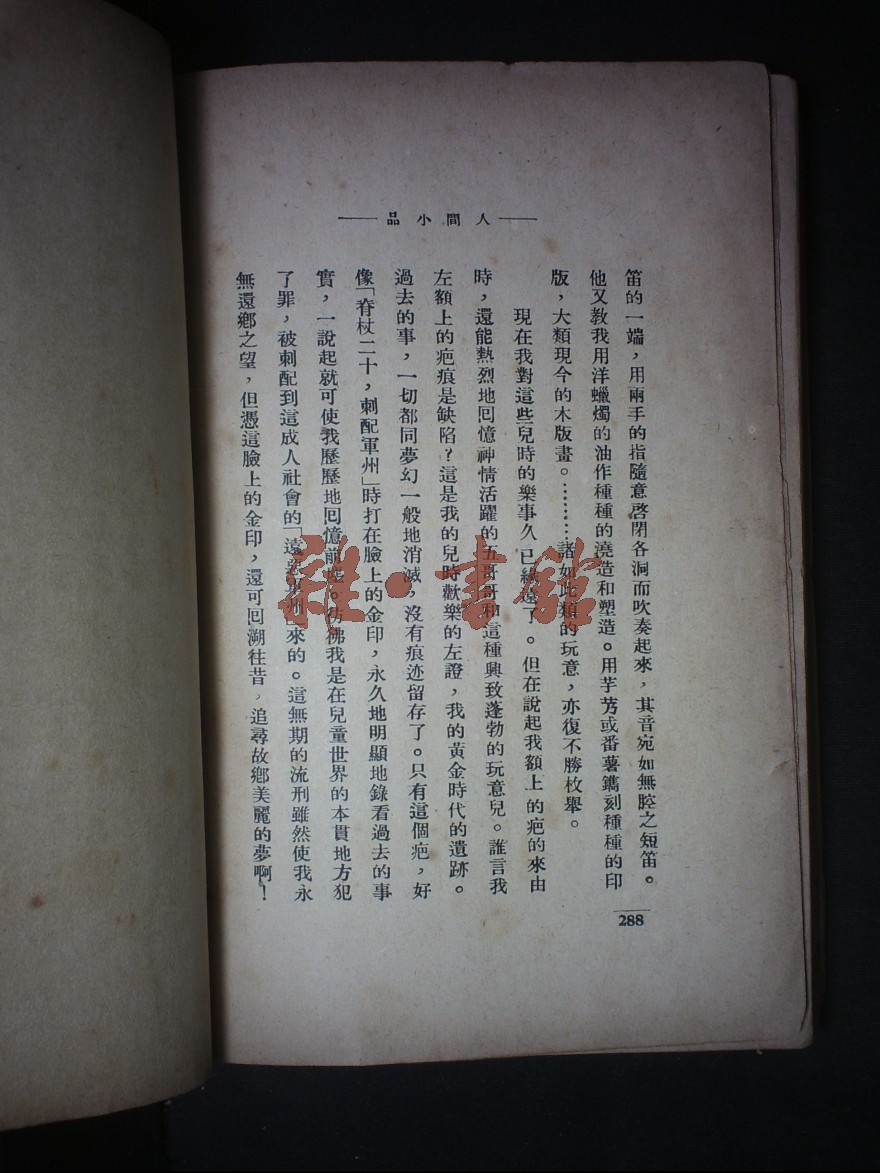 人間小品
笛的一端，用兩手的指隨意啓閉各洞而吹奏起來，其音宛如無腔之短笛。
他又教我用洋蠟燭的油作種種的澆造和塑造。用芋艿或番薯鐫刻種種的印
版，大類現今的木版畫。………諸如此類的玩意，亦復不勝枚舉。
現在我對這些兒時的樂事久已緣遠了。但在說起我額上的疤的來由
時，還能熱烈地回憶神情活躍的五哥哥和這種興致蓬勃的玩意兒。誰言我
左額上的疤痕是缺陷？這是我的兒時歡樂的左證，我的黃金時代的遺跡。
過去的事，一切都同夢幻一般地消滅，沒有痕迹留存了。只有這個疤，好
像「脊杖二十，刺配軍州」時打在臉上的金印，永久地明顯地錄看過去的事
實，一說起就可使我歷歷地回憶前塵。彷彿我是在兒童世界的本貫地方犯
了罪，被刺配到這成人社會的「遠惡軍州」來的。這無期的流刑雖然使我永
無還鄉之望，但憑這臉上的金印，還可回溯往昔，追尋故鄉美麗的夢啊！
288
雜·書館